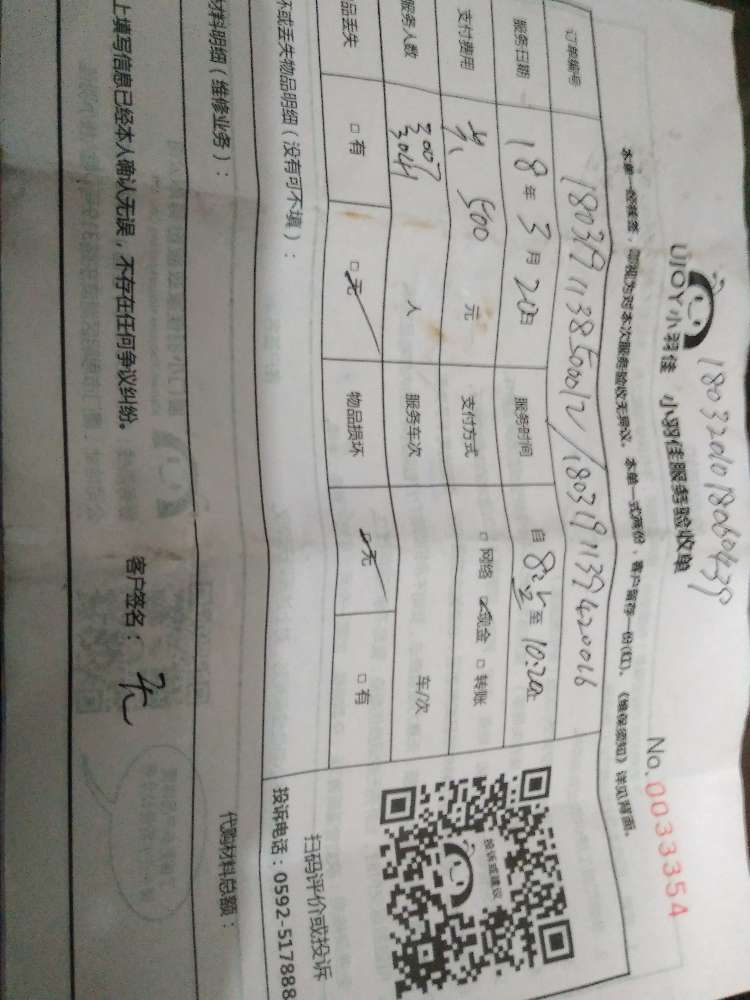 1803201018060439
UJOY小羽佳 小羽佳服务验收单
No.0033354
本单一经核签，即视为对本次服务验收无异议，本单一式两份，客户留存一份(红)。《维保须知》详见背面。
订单编号 180319113850012/1803191139420016
服务日期 18年3月20日 服务时间 自 8: 至 10:20止
支付费用 500 元 支付方式 □网络 ☑现金 □转账
服务人数 人 服务车次 车/次
品丢失 □有 ☑无 物品损坏 ☑无 □有
投诉或建议
扫码评价或投诉
坏或丢失物品明细（没有可不填）：
投诉电话：0592-517888
材料明细（维修业务）：
代购材料总额：
上填写信息已经本人确认无误，不存在任何争议纠纷。 客户签名：